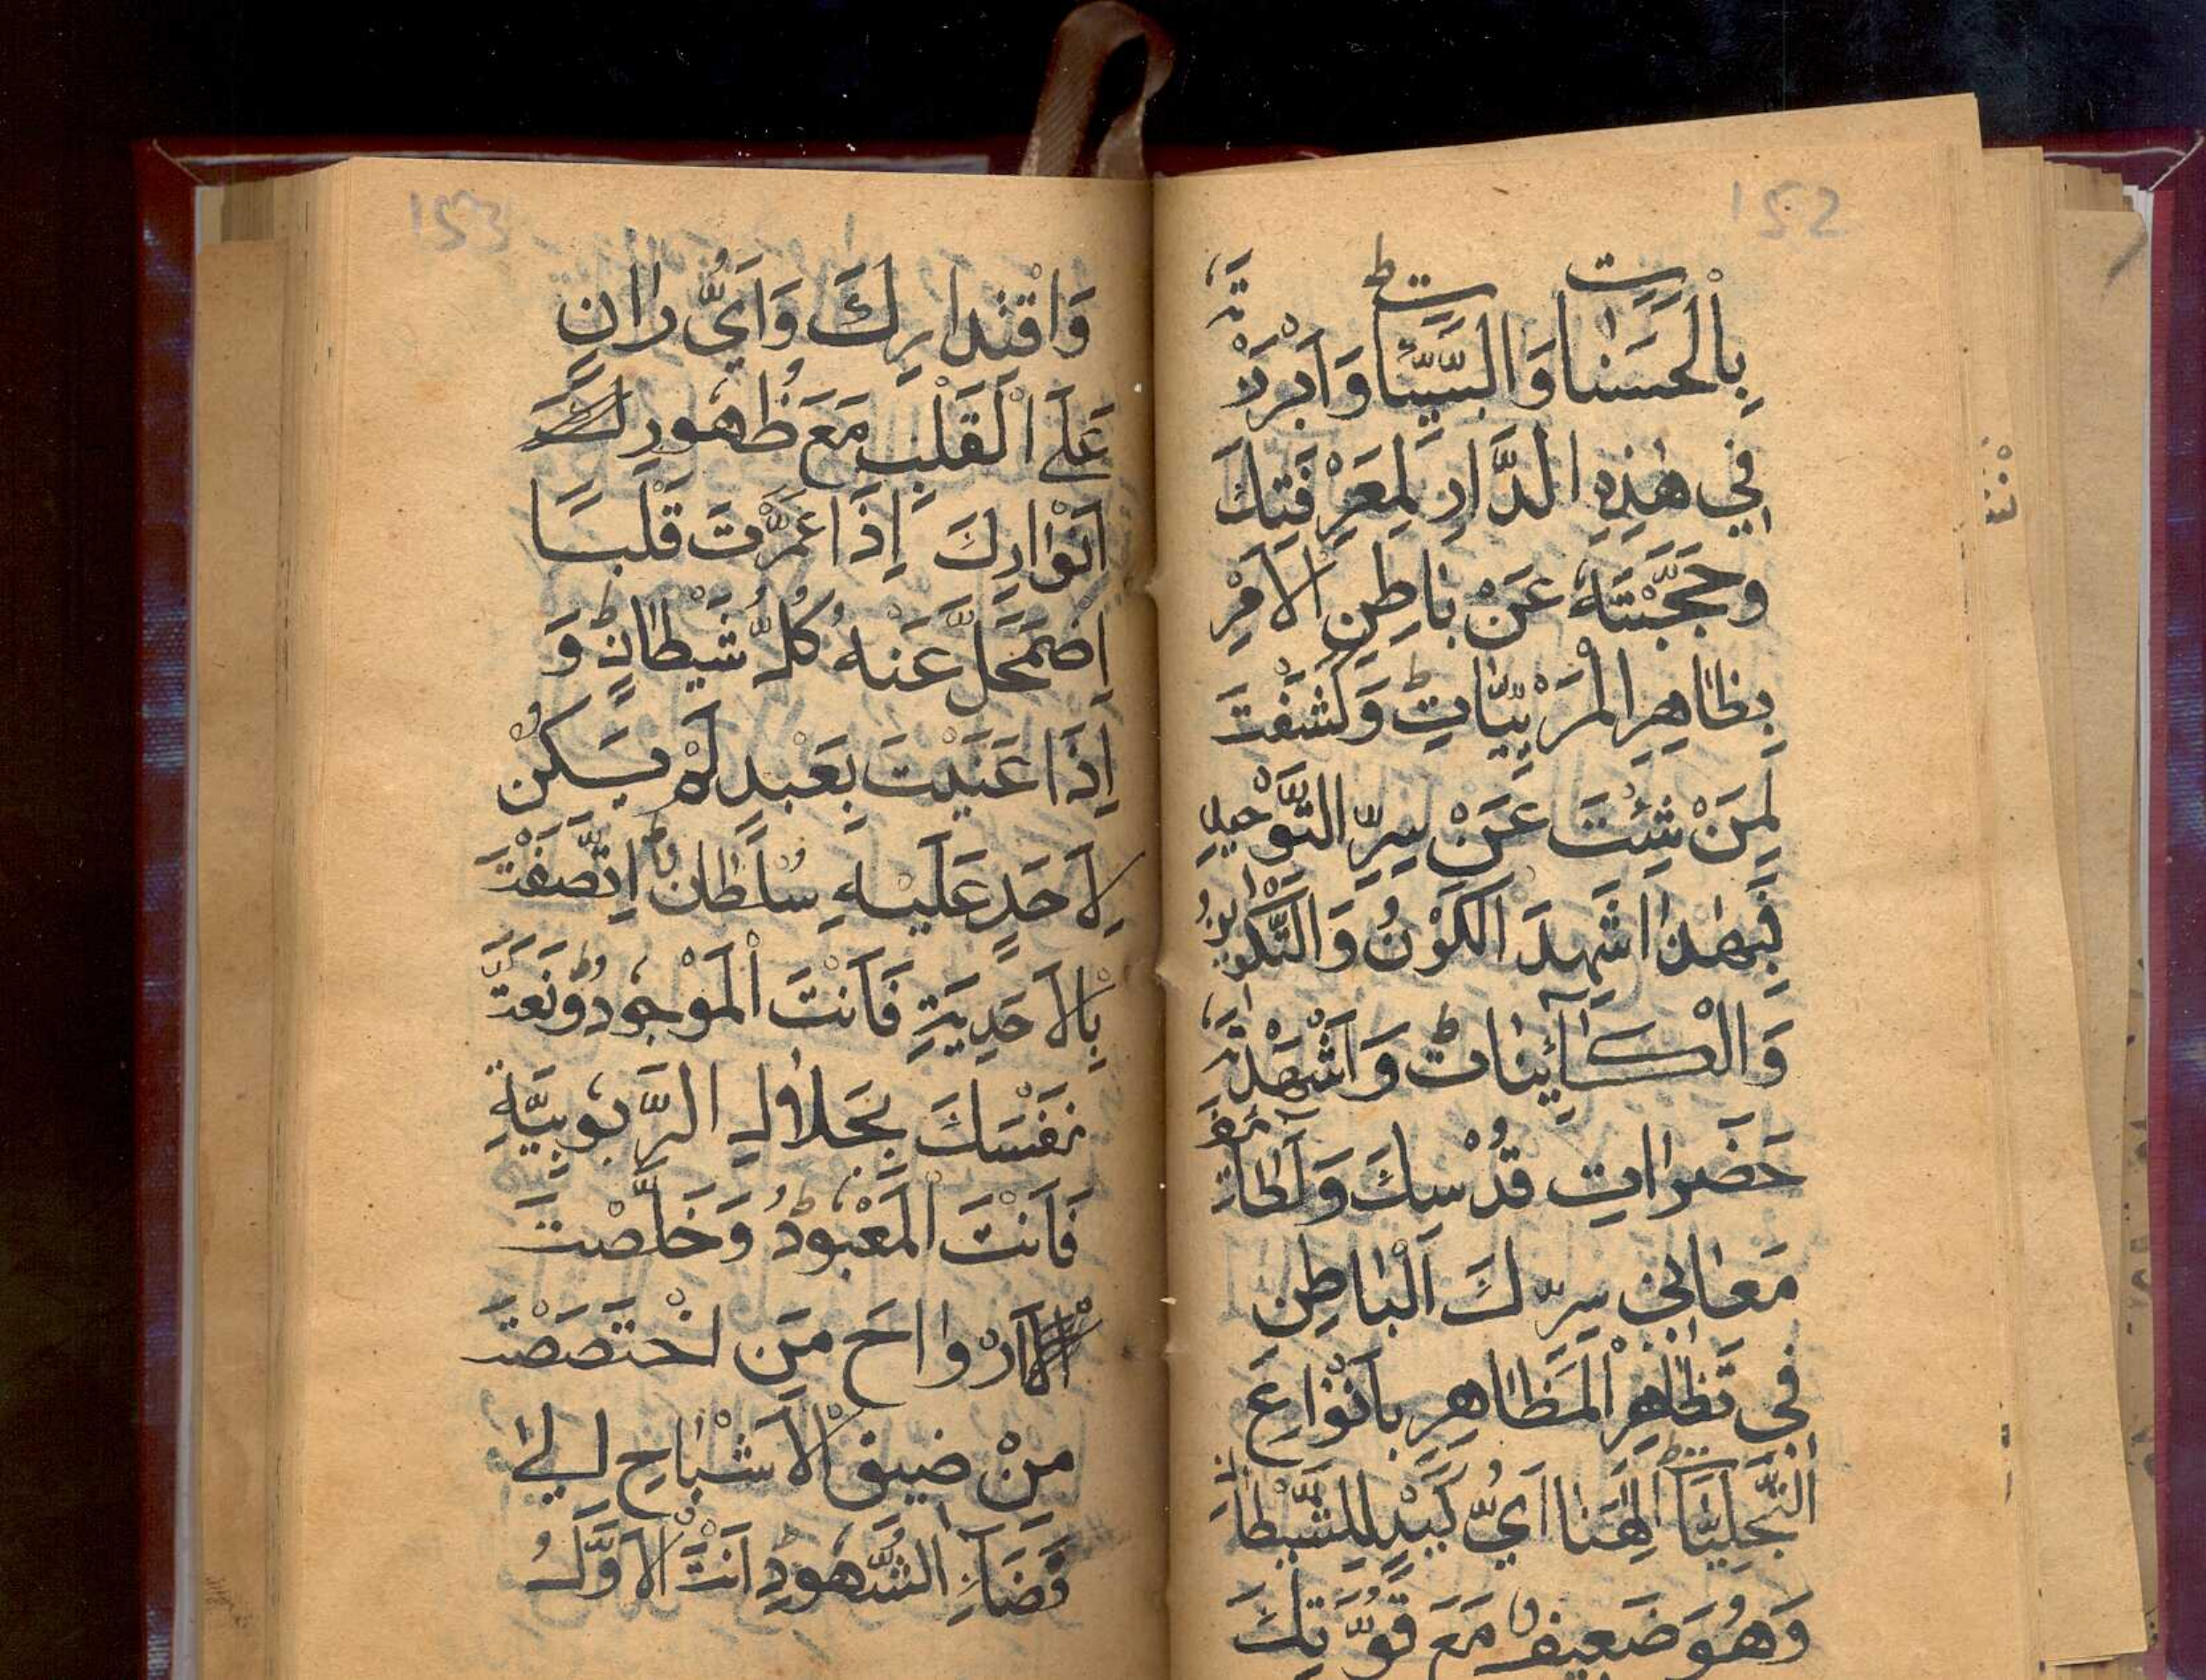 152
بِالْحَسَنٰاتِ وَالسَّيِّئَاتِ ط وَاَبْرَزْتَهُ
فِي هٰذِهِ الدَّارِ لِمَعْرِفَتِكَ
وَحَجَّبْتَهُ عَنْ بَاطِنِ الْاَمْرِ
بِظَاهِرِ الْمَرْئِيَّاتِ ط وَكَشَفْتَ
لِمَنْ شِئْتَ عَنْ سِرِّ التَّوْحِيدِ
فَبِهٰذَا شَهِدَ الْكَوْنُ وَالتَّكْوِينُ
وَالْكَآئِنَاتُ ط وَاَشْهَدْتَهُ
حَضَرَاتِ قُدْسِكَ وَلَطَآئِفَ
مَعَانِي سِرِّكَ الْبَاطِنِ
فِي تَظَاهِرِ الْمَظَاهِرِ بِاَنْوَاعِ
التَّجَلِّيَاتِ اِلٰهَنَا اَيُّ كَيْدٍ لِلشَّيْطَانِ
وَهُوَ ضَعِيفٌ مَعَ قُوَّتِكَ
153
وَاقْتِدَارِكَ وَاَيُّ رَانٍ
عَلَى الْقَلْبِ مَعَ ظُهُورِ
اَنْوَارِكَ اِذَا عَمَّرْتَ قَلْبًا
اِضْمَحَلَّ عَنْهُ كُلُّ شَيْطَانٍ ط وَ
اِذَا عَنَيْتَ بِعَبْدٍ لَمْ يَكُنْ
لِاَحَدٍ عَلَيْهِ سُلْطَانٌ ط اِتَّصَفْتَ
بِالْاَحَدِيَّةِ فَاَنْتَ الْمَوْجُودُ ط وَنَعَتَّ
نَفْسَكَ بِجَلَالِ الرَّبُوبِيَّةِ
فَاَنْتَ الْمَعْبُودُ ط وَخَلَّصْتَ
اَرْوَاحَ مَنِ اخْتَصَصْتَ
مِنْ ضِيقِ الْاَشْبَاحِ اِلٰى
فَضَآءِ الشُّهُودِ اَنْتَ الْاَوَّلُ